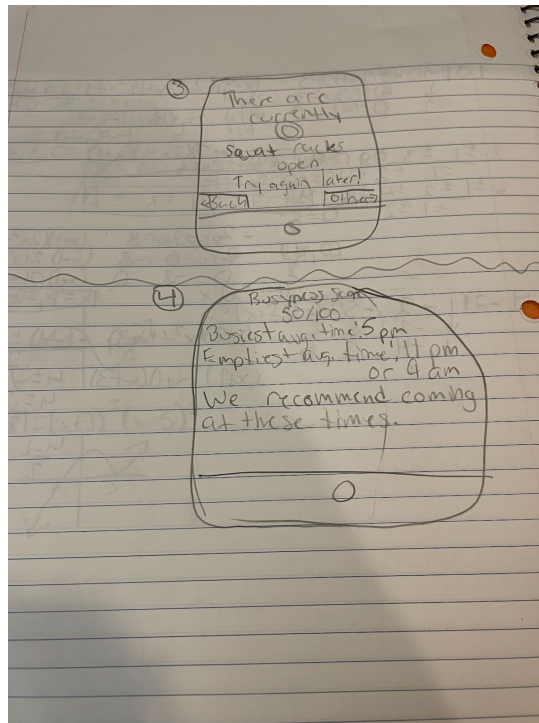 3
There are
currently
0
Squat racks
open
Try again later!
<Back Other>
4
Busyness Score
50/100
Busiest avg. time: 5 pm
Emptiest avg. time: 11 pm
or 9 am
We recommend coming
at these times.